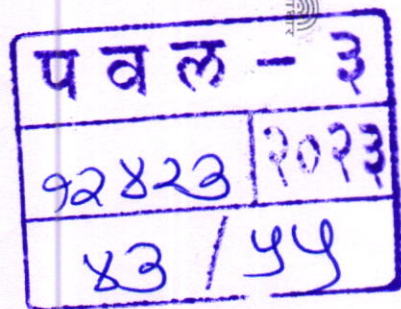 पवल - ३
१२४२३ २०२३
४३ / ५५